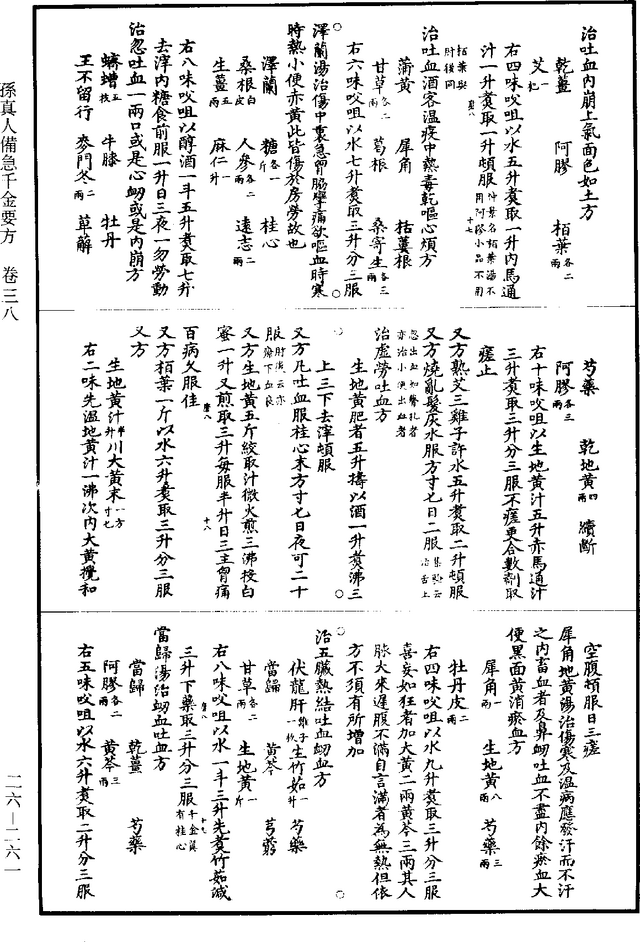 治吐血內崩上氣面色如土方
乾薑 阿膠 栢葉各二兩
艾一把
右四味㕮咀以水五升煮取一升內馬通
汁一升煮取一升頓服仲景名栢葉湯不用阿膠小品不用
栢葉與肘後同
治吐血酒客溫疫中熱毒乾嘔心煩方
蒲黃 犀角 栝蔞根
甘草各二兩 葛根 桑寄生各三兩
右六味㕮咀以水七升煮取三升分三服
澤蘭湯治傷中裏急胷脇攣痛欲嘔血時寒
時熱小便赤黃此皆傷於房勞故也
澤蘭 糖各一斤 桂心
桑根白皮 人參各二兩 遠志二兩
生薑五兩 麻仁一升
右八味㕮咀以醇酒一斗五升煮取七升
去滓內糖食前服一升日三夜一勿勞動
治忽吐血一兩口或是心衂或是內崩方
蠐螬五枚 牛膝 牡丹
王不留行 麥門冬各二兩 萆薢
芍藥 乾地黃四兩 續斷
阿膠各三兩
右十味㕮咀以生地黃汁五升赤馬通汁
三升煮取三升分三服不瘥更合數劑取
瘥止
又方熟艾三雞子許水五升煮取二升頓服
又方燒亂髮灰水服方寸七日二服集驗云治舌上
忽出血如簪孔者亦治小便出血者
治虛勞吐血方
生地黃肥者五升擣以酒一升煮沸三
上三下去滓頓服
又方凡吐血服桂心末方寸七日夜可二十
服肘後云亦療下血良
又方生地黃五斤絞取汁微火煎三沸投白
蜜一升又煎取三升每服半升日三主胷痛
百病久服佳
又方栢葉一斤以水六升煮取三升分三服
又方
生地黃汁半升川大黃末一方寸七
右二味先溫地黃汁一沸次內大黃攪和
空腹頓服日三瘥
犀角地黃湯治傷寒及溫病應發汗而不汗
之內畜血者及鼻衂吐血不盡內餘瘀血大
便黑面黃消瘀血方
犀角一兩 生地黃八兩 芍藥三兩
牡丹皮二兩
右四味㕮咀以水九升煮取三升分三服
喜妄如狂者加大黃二兩黃芩三兩其人
脉大來遲腹不滿自言滿者為無熱但依
方不須有所增加
治五臟熱結吐血衂血方
伏龍肝雞子一枚 生竹茹一升 芍藥
當歸 黃芩 芎藭
甘草各二兩 生地黃一斤
右八味㕮咀以水一斗三升先煮竹茹減
三升下藥取三升分三服千金翼有桂心
當歸湯治衂血吐血方
當歸 乾薑 芍藥
阿膠各二兩 黃芩三兩
右五味㕮咀以水六升煮取二升分三服
孫真人備急千金要方 卷三八
二六—二六一